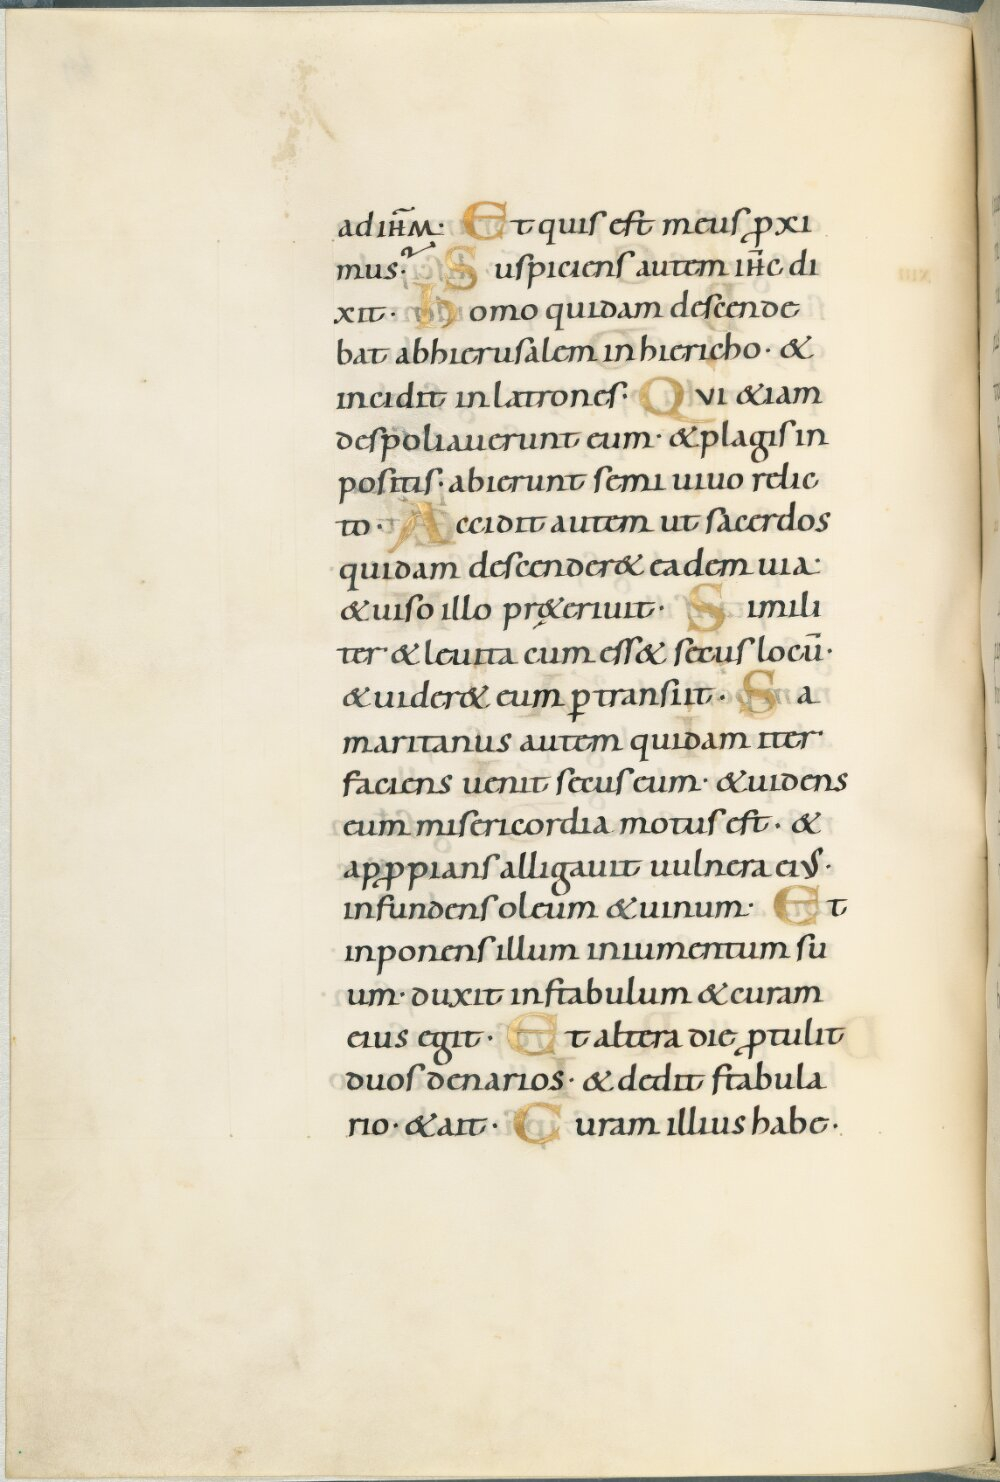 ad ih̅m· Et quis est meus ꝓxi
mus·? Suspiciens autem ih̅c di
xit· homo quidam descende
bat abhierusalem in hiericho· &
incidit in latrones· Qui &iam
despoliauerunt eum· & plagis in
positis· abierunt semi uiuo relic
to· Accidit autem ut sacerdos
quidam descender& eadem uia·
& uiso illo pr&eriuit· Simili
ter & leuita cum ess& secus locū·
& uider& eum ꝑtransiit· Sa
maritanus autem quidam iter·
faciens uenit secus eum· & uidens
eum misericordia motus est· &
apꝓpians alligauit uulnera eius·
infundens oleum & uinum· Et
inponens illum iniumentum su
um· duxit in stabulum & curam
eius egit· Et altera die ꝓtulit
duos denarios· & dedit stabula
rio· & ait· Curam illius habe·